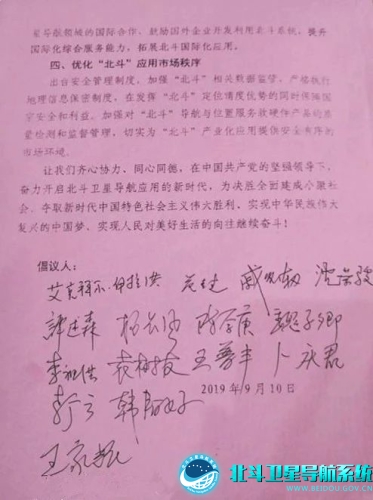 星导航领域的国际合作、鼓励国外企业开发利用北斗系统，提升
国际化综合服务能力，拓展北斗国际化应用。
四、优化“北斗”应用市场秩序
出台安全管理制度，加强“北斗”相关数据监管，严格执行
地理信息保密制度，在发挥“北斗”定位精度优势的同时保障国
家安全和利益。加强对“北斗”导航与位置服务软硬件产品的质
量检测和监督管理，切实为“北斗”产业化应用提供安全有序的
市场环境。
让我们齐心协力、同心同德，在中国共产党的坚强领导下，
奋力开启北斗卫星导航应用的新时代，为决胜全面建成小康社
会、夺取新时代中国特色社会主义伟大胜利、实现中华民族伟大
复兴的中国梦、实现人民对美好生活的向往继续奋斗！
倡议人：
杨长风 魏子卿
李祖洪 袁树友 王 丰 卜庆君
2019年9月10日
王家
北斗卫星导航系统
WWW.BEIDOU.GOV.CN